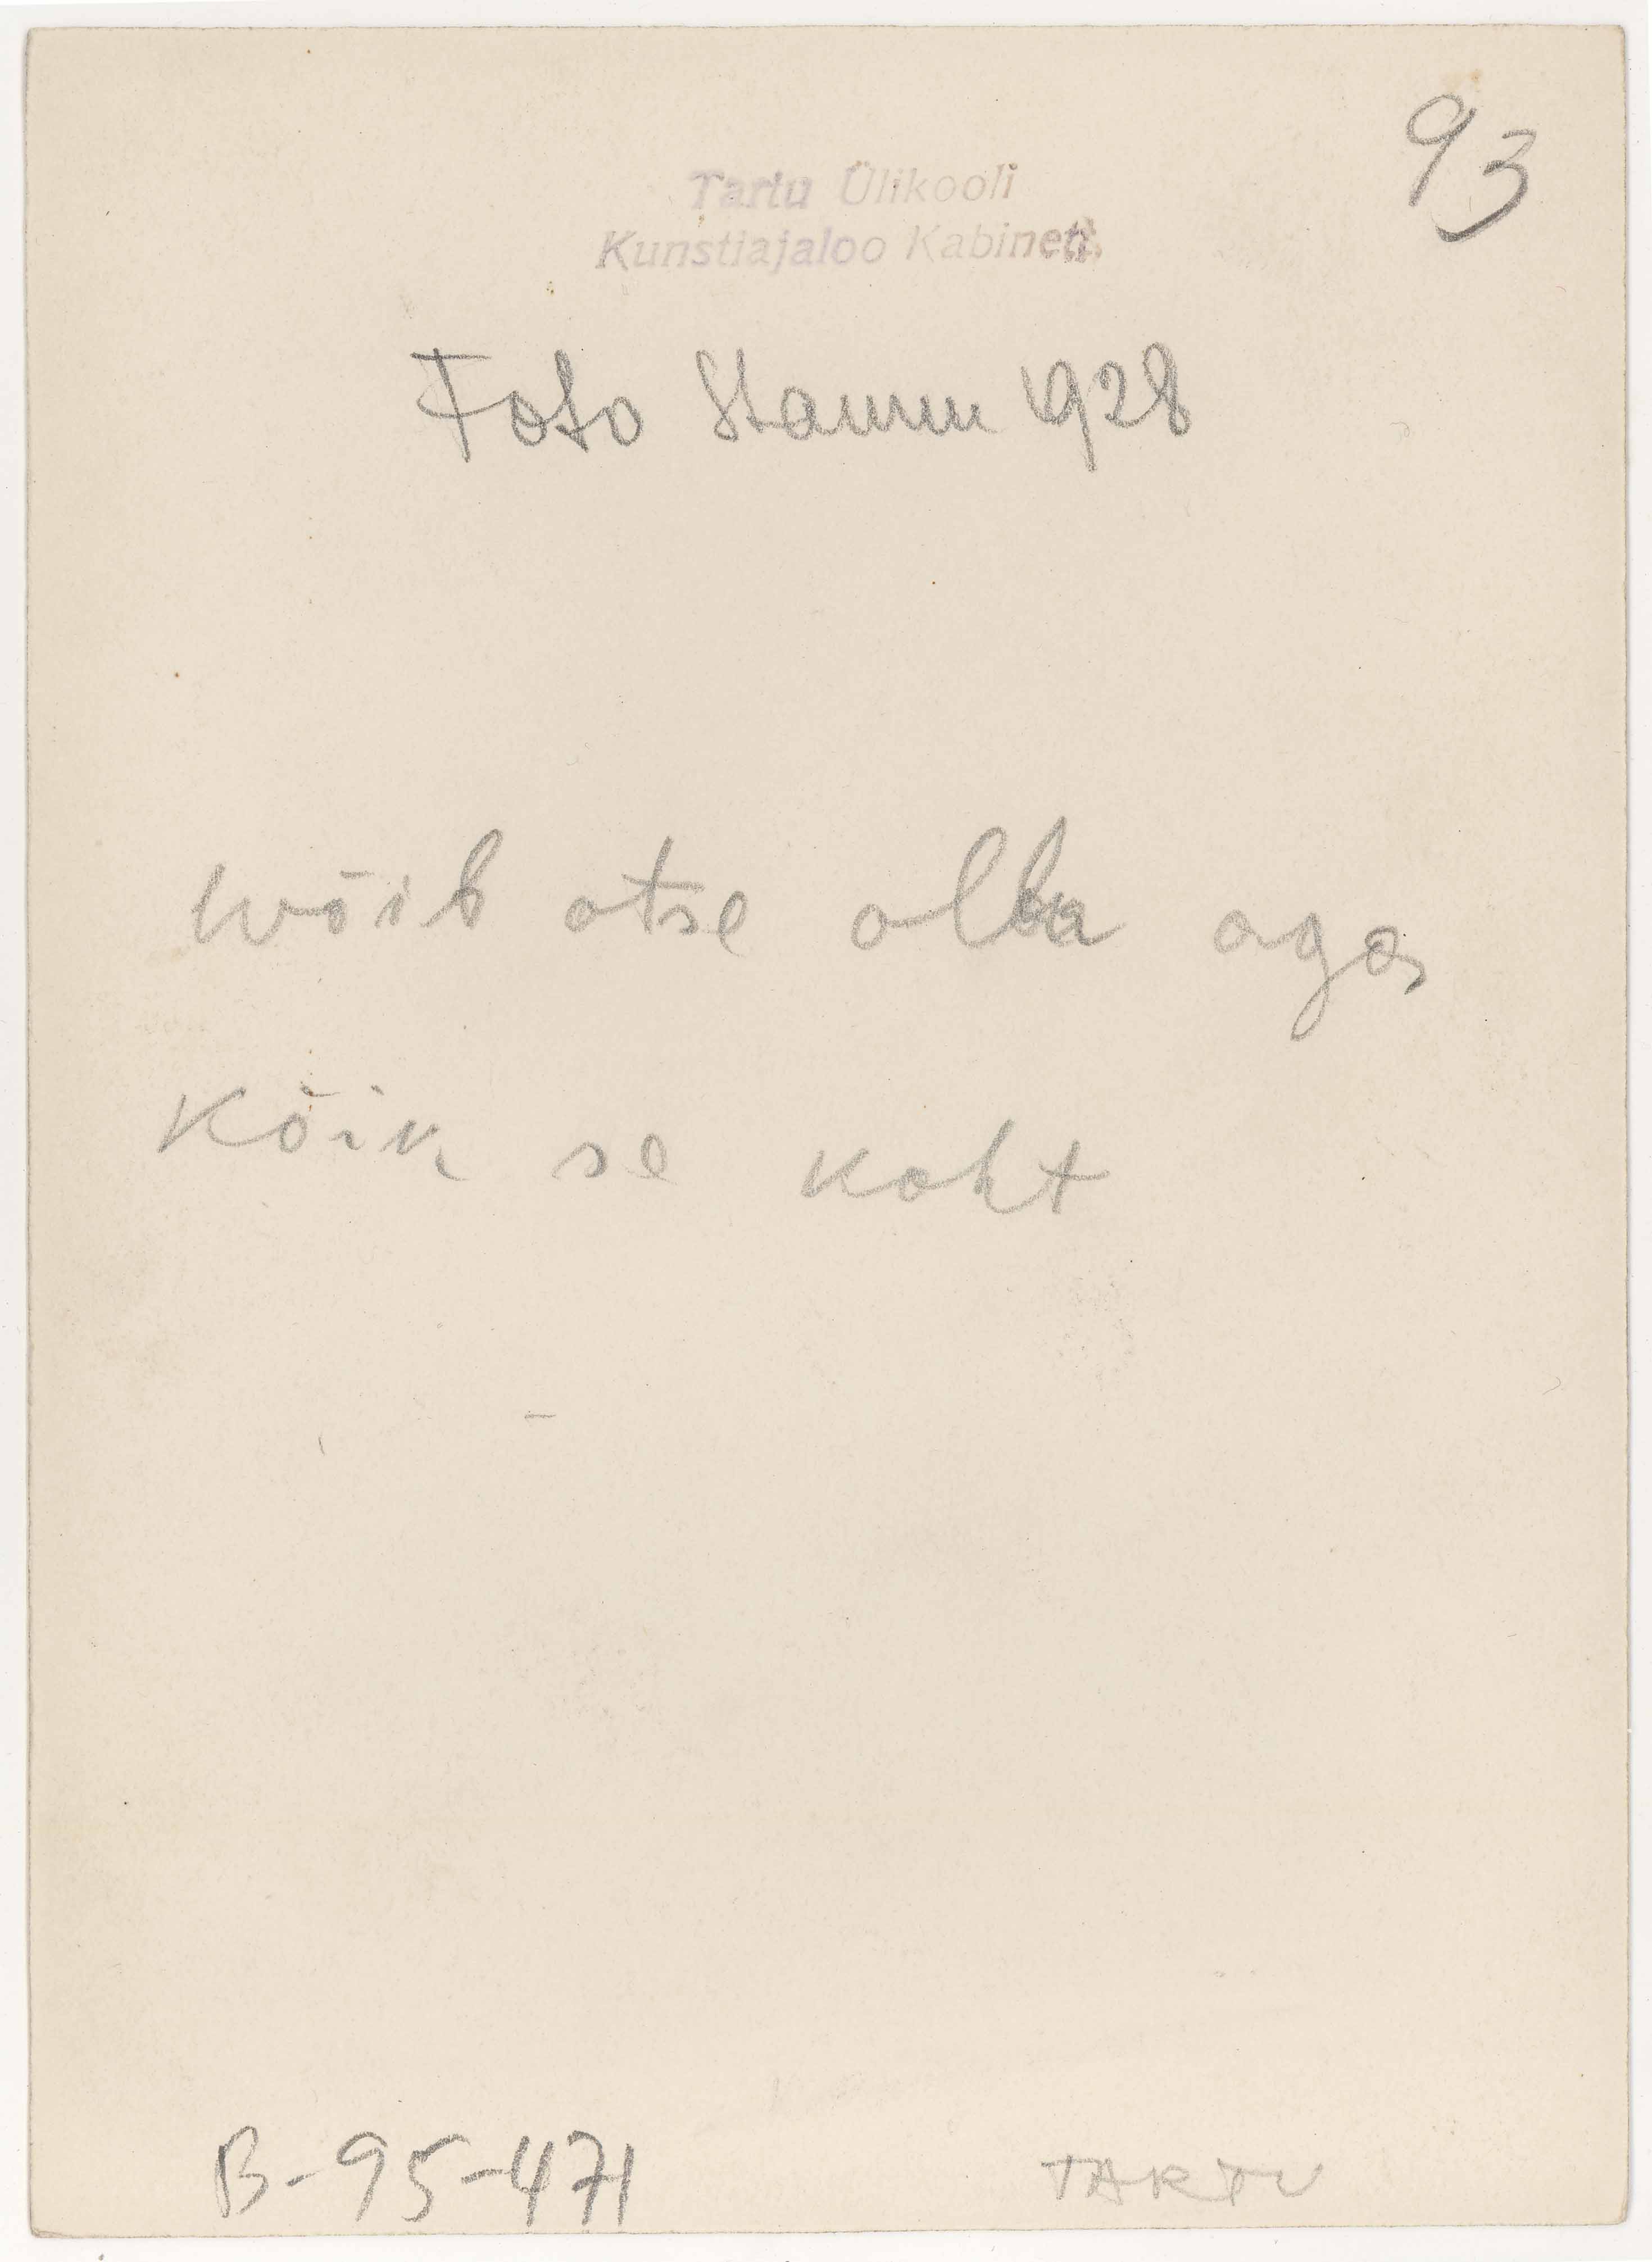 93
Tartu Ülikooli
Kunstiajaloo Kabinett.
Foto Stamm 1928
wõib otse olla aga
kõik se koht
B-95-471
TARTU